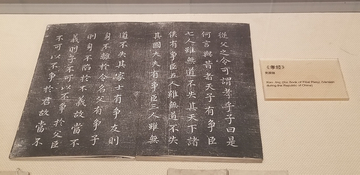 從父之令可謂孝乎子曰是
何言與昔者天子有爭臣
七人雖無道不失其天下諸
侯有爭臣五人雖無道不失
其國大夫有爭臣三人雖無
道不失其家士有爭友則
身不離於令名父有爭子
則身不陷於不義故當不
義則子不可以不爭於父臣
不可以不爭於君故當不
《孝經》